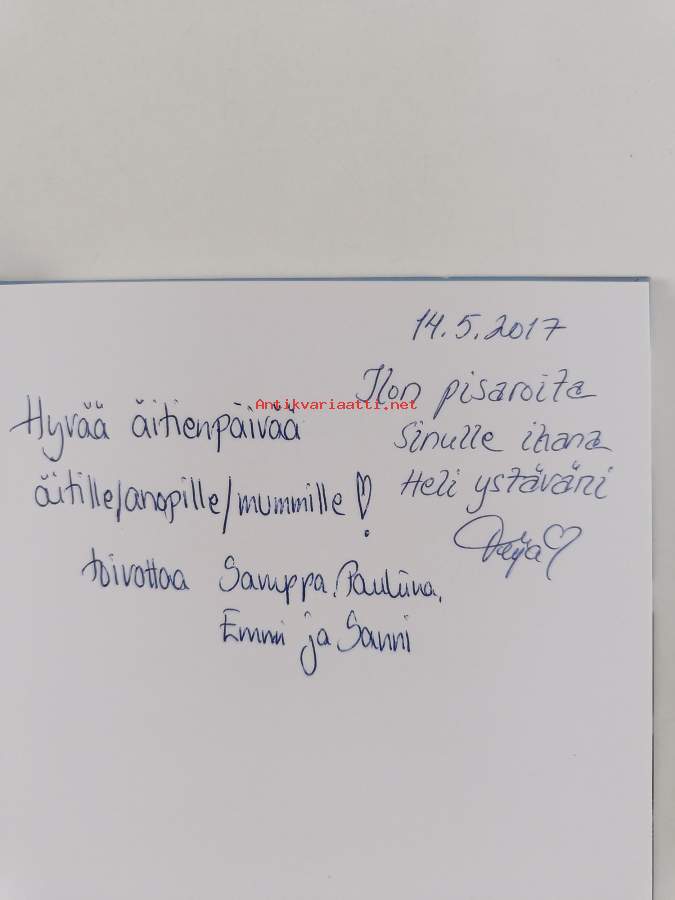 14.5.2017
Ilon pisaroita
Sinulle ihana
Heli ystäväni
Hyvää äitienpäivää
äitille/anopille/mummille!
toivottaa Samppa, Pauliina,
Emmi ja Sanni
Antikvariaatti.net